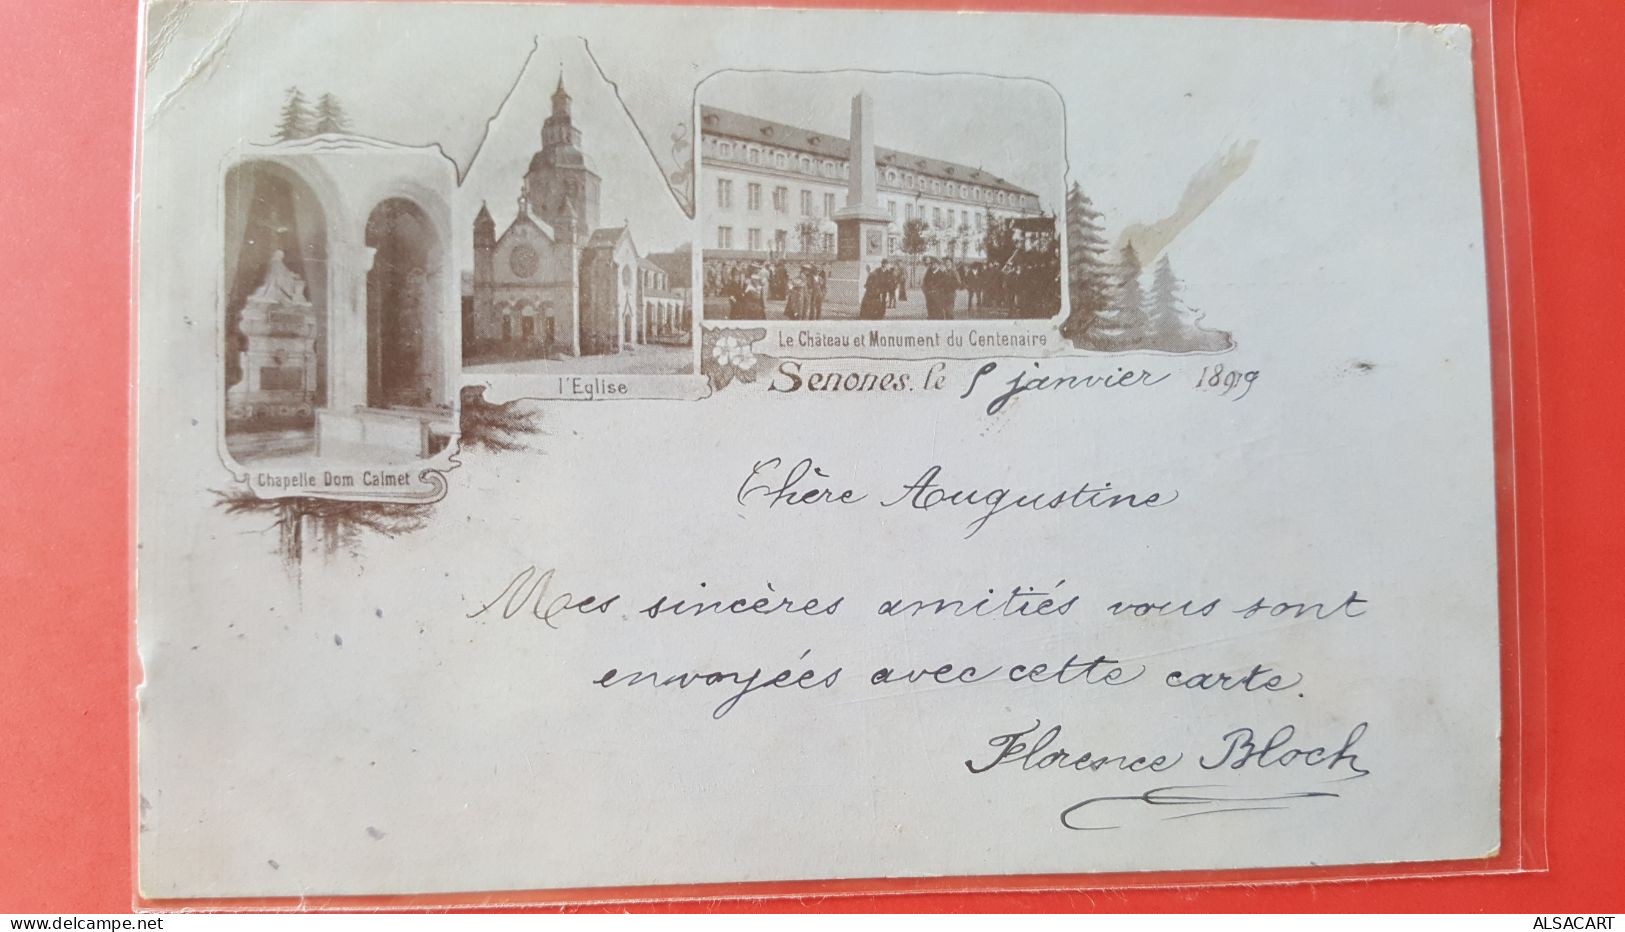 Le Château et Monument du Centenaire
l'Eglise
Senones, le 5 janvier 1899
Chapelle Dom Calmet
Chère Augustine
Mes sincères amitiés vous sont
envoyées avec cette carte.
Florence Bloch
ALSACART